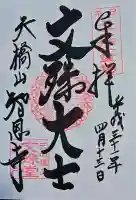 奉拝
平成三十一年
四月十三日
文殊大士
天橋山
智恩寺